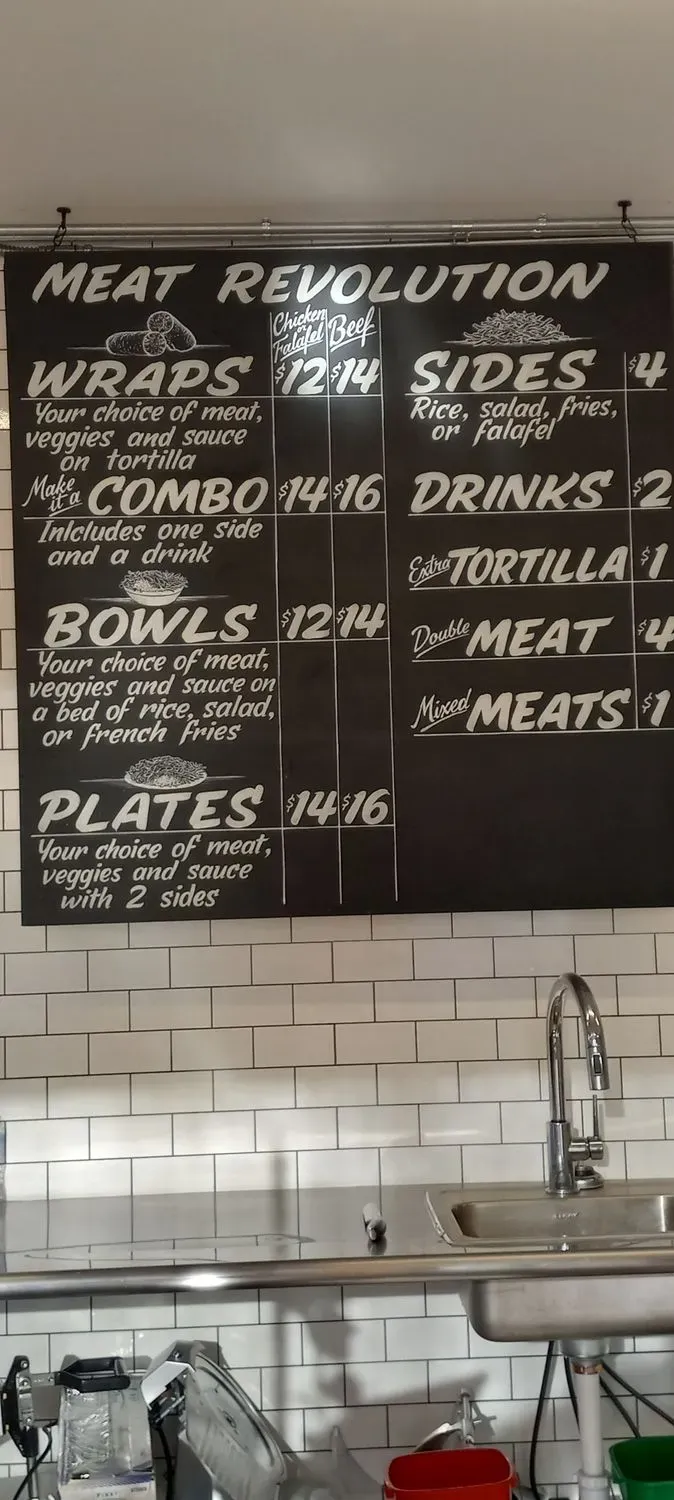 MEAT REVOLUTION
Chicken
or
Falafel
Beef
WRAPS $12 $14
Your choice of meat,
veggies and sauce
on tortilla
Make it a COMBO $14 $16
Inlcludes one side
and a drink
BOWLS $12 $14
Your choice of meat,
veggies and sauce on
a bed of rice, salad,
or french fries
PLATES $14 $16
Your choice of meat,
veggies and sauce
with 2 sides
SIDES $4
Rice, salad, fries,
or falafel
DRINKS $2
Extra TORTILLA $1
Double MEAT $4
Mixed MEATS $1